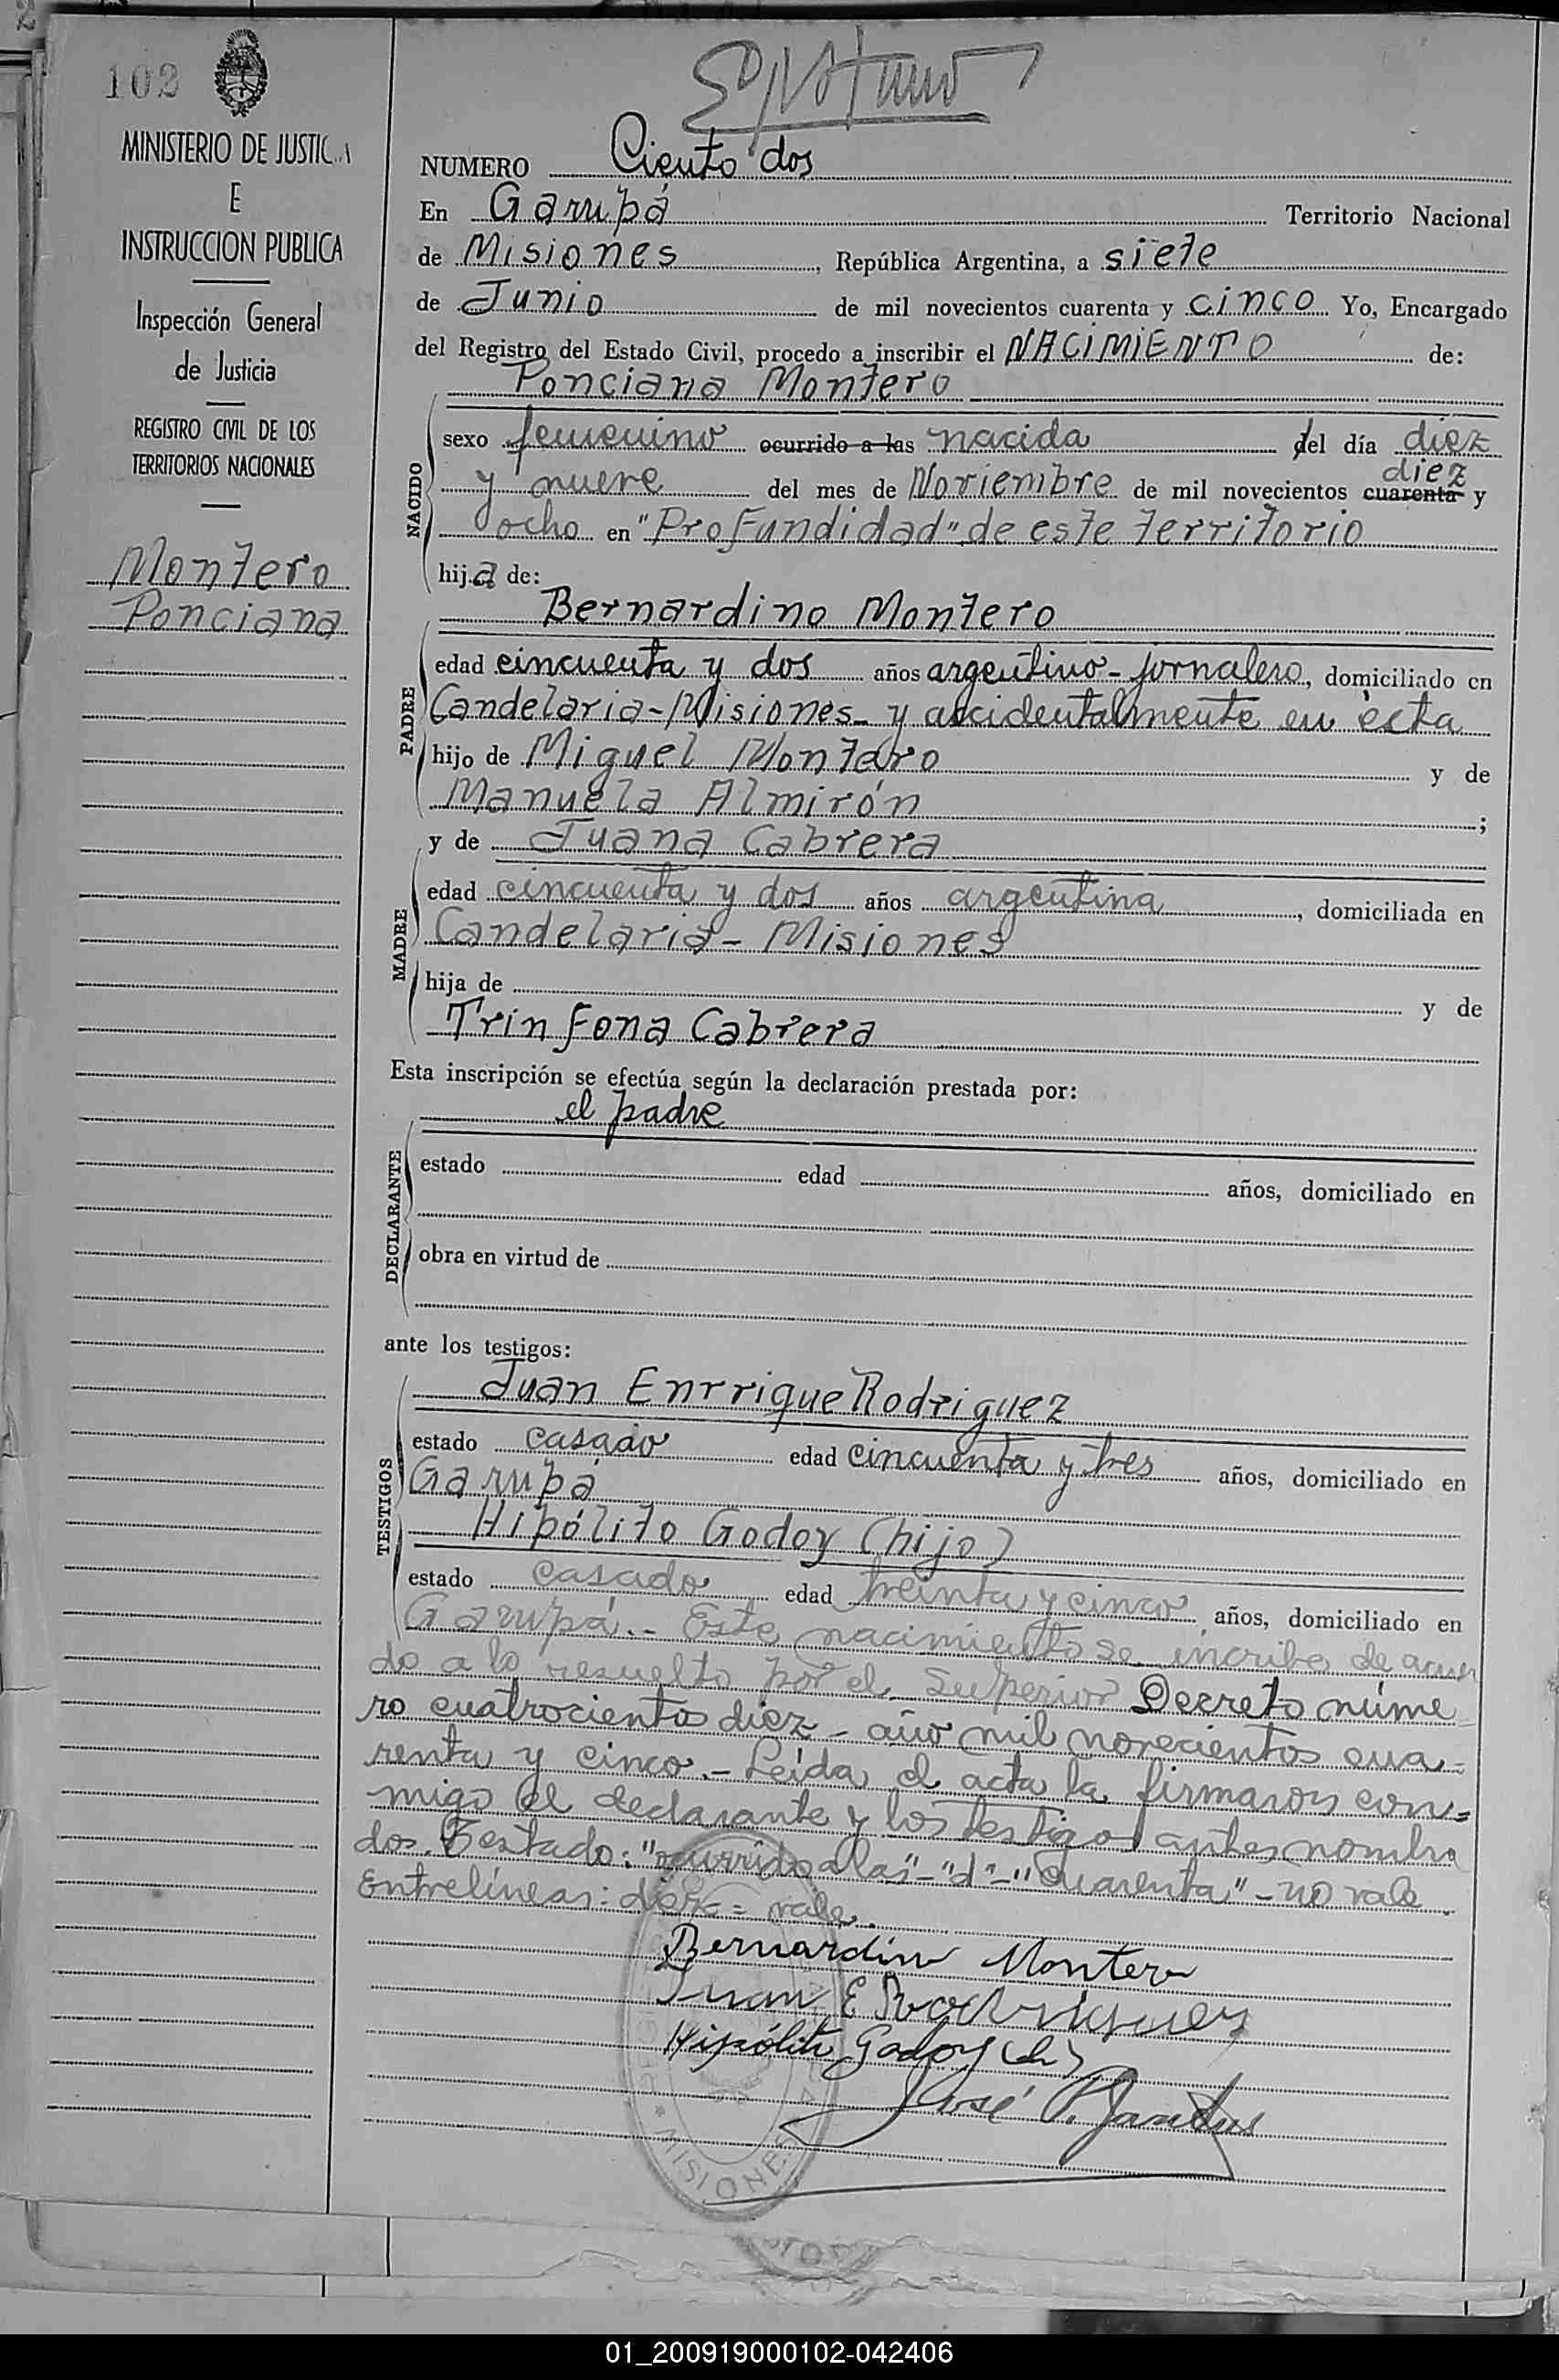 102
MINISTERIO DE JUSTICIA
E
INSTRUCCION PUBLICA
Inspección General
de Justicia
REGISTRO CIVIL DE LOS
TERRITORIOS NACIONALES
Montero
Ponciana
NUMERO Ciento dos
En Garupá Territorio Nacional
de Misiones, República Argentina, a siete
de Junio de mil novecientos cuarenta y cinco Yo, Encargado
del Registro del Estado Civil, procedo a inscribir el NACIMIENTO de:
Ponciana Montero
NACIDO
sexo femenino ocurrido a las nacida del día diez
y nueve del mes de Noviembre de mil novecientos cuarenta diez y
ocho en "Profundidad" de este territorio
hija de:
Bernardino Montero
PADRE
edad cincuenta y dos años argentino - jornalero, domiciliado en
Candelaria - Misiones - y accidentalmente en ésta
hijo de Miguel Montero y de
Manuela Almirón;
y de Juana Cabrera
MADRE
edad cincuenta y dos años argentina, domiciliada en
Candelaria - Misiones
hija de y de
Trinfona Cabrera
Esta inscripción se efectúa según la declaración prestada por:
el padre
DECLARANTE
estado edad años, domiciliado en
obra en virtud de
ante los testigos:
Juan Enrrique Rodriguez
TESTIGOS
estado casado edad cincuenta y tres años, domiciliado en
Garupá
Hipólito Godoy (hijo)
estado casado edad treinta y cinco años, domiciliado en
Garupá.- Este nacimiento se incribe de acuer
do a lo resuelto por el Superior Decreto núme
ro cuatrocientos diez - año mil novecientos cua=
renta y cinco.- Leída el acta la firmaron con=
migo el declarante y los testigos antes nombra
dos. Testado: "ocurrido a las" - "d" - "cuarenta" - no vale.
Entrelíneas: diez = vale.
Bernardino Montero
Juan E Rodriguez
Hipólito Godoy (h)
José P.
MISIONES
01_200919000102-042406